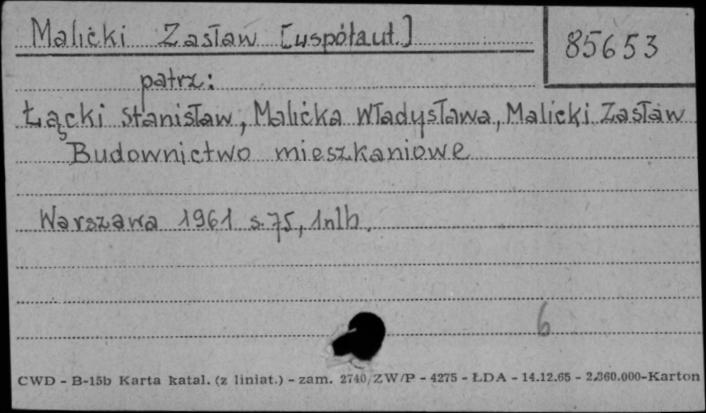 Malicki Zasław [współaut.]
85653
patrz:
Łącki Stanisław, Malicka Władysława, Malicki Zasław
Budownictwo mieszkaniowe
Warszawa 1961 s. 75, 1nlb.
6
CWD - B-15b Karta katal. (z liniat.) - zam. 2740/ZW/P - 4275 - ŁDA - 14.12.65 - 2.360.000-Karton